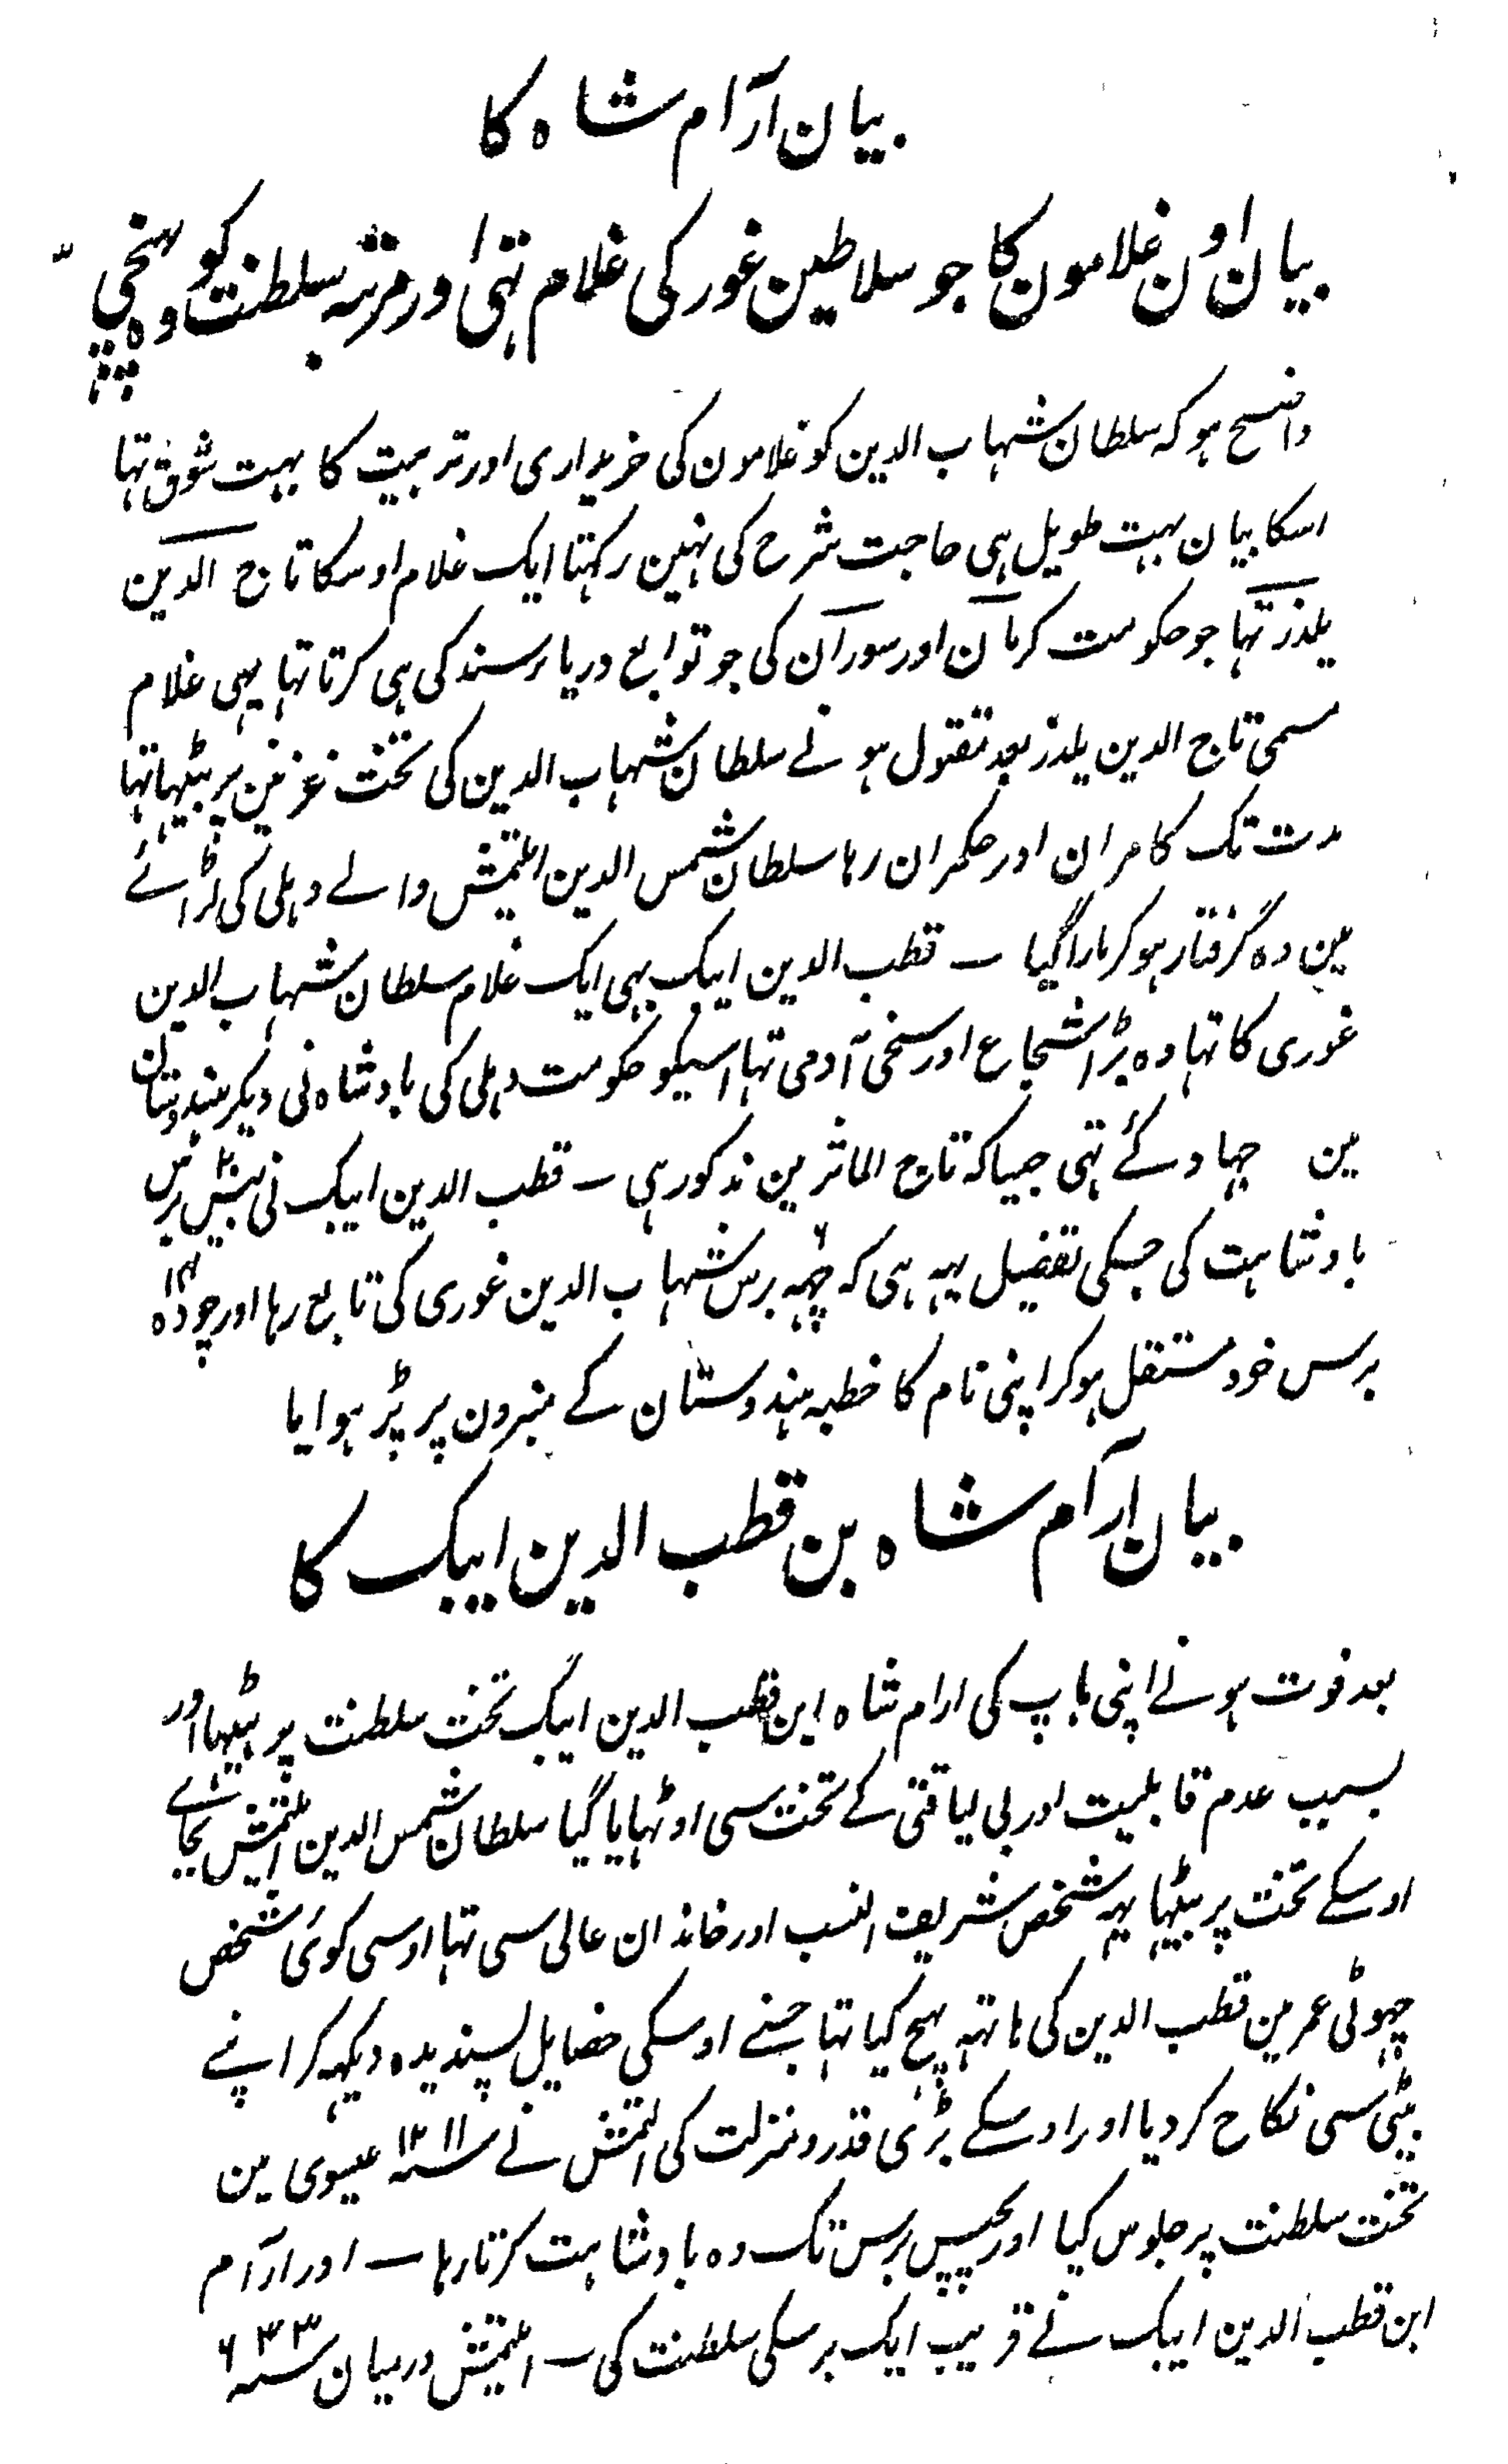 بیان آرام شاہ کا
بیان اون غلامون کا جو سلاطین غور کی غلام تہی اور مرتبہ سلطنت کو وہ پہنچی
واضح ہو کہ سلطان شہاب الدین کو غلامون کی خریداری اور تربیت کا بہت شوق تہا
اسکا بیان بہت طویل ہی حاجت شرح کی نہین رکہتا ایک غلام اوسکا تاج الدین
یلدز تہا جو حکومت کرمان اور سوران کی جو توابع دریا سند کی ہی کرتا تہا یہی غلام
مسمی تاج الدین یلدز بعد مقتول ہونے سلطان شہاب الدین کی تخت غزنین پر بیٹہا تہا
مدت تک کامران اور حکمران رہا سلطان شمس الدین التمش والے دہلی کی لڑائے
مین وہ گرفتار ہوکر مارا گیا ۔ قطب الدین ایبک بہی ایک غلام سلطان شہاب الدین
غوری کا تہا وہ بڑا شجاع اور سخی آدمی تہا اسیکو حکومت دہلی کی بادشاہ نی دیکر ہندوستان
مین جہاد کئے تہی جیسا کہ تاج الماثر مین مذکور ہی ۔ قطب الدین ایبک نی بیس ۲۰ برس
بادشاہت کی جسکی تفصیل یہہ ہی کہ چہہ ۶ برس شہاب الدین غوری کی تابع رہا اور چودہ ۱۴
برس خود مستقل ہوکر اپنی نام کا خطبہ ہندوستان کے منبرون پر پڑہوایا
بیان آرام شاہ بن قطب الدین ایبک کا
بعد فوت ہونے اپنی باپ کی ارام شاہ ابن قطب الدین ایبک تخت سلطنت پر بیٹہا اور
بسبب عدم قابلیت اور بی لیاقتی کے تخت سی اوٹہایا گیا سلطان شمس الدین التمش بجاے
اوسکے تخت پر بیٹہا یہہ شخص شریف النسب اور خاندان عالی سی تہا اوسی کوئی شخص
چہوٹی عمر مین قطب الدین کی ہاتہہ بیچ گیا تہا جسنے اوسکی خصایل پسندیدہ دیکہہ کر اپنے
بیٹی سی نکاح کردیا اور اوسکے بڑی قدر و منزلت کی التمش نے سنہ ۱۲۱۱ عیسوی مین
تخت سلطنت پر جلوس کیا اور پچیس برس تک وہ بادشاہت کرتا رہا ۔ اور ارآم
ابن قطب الدین ایبک نے قریب ایک برسکی سلطنت کی ۔ التمش درمیان سنہ ۶۳۳